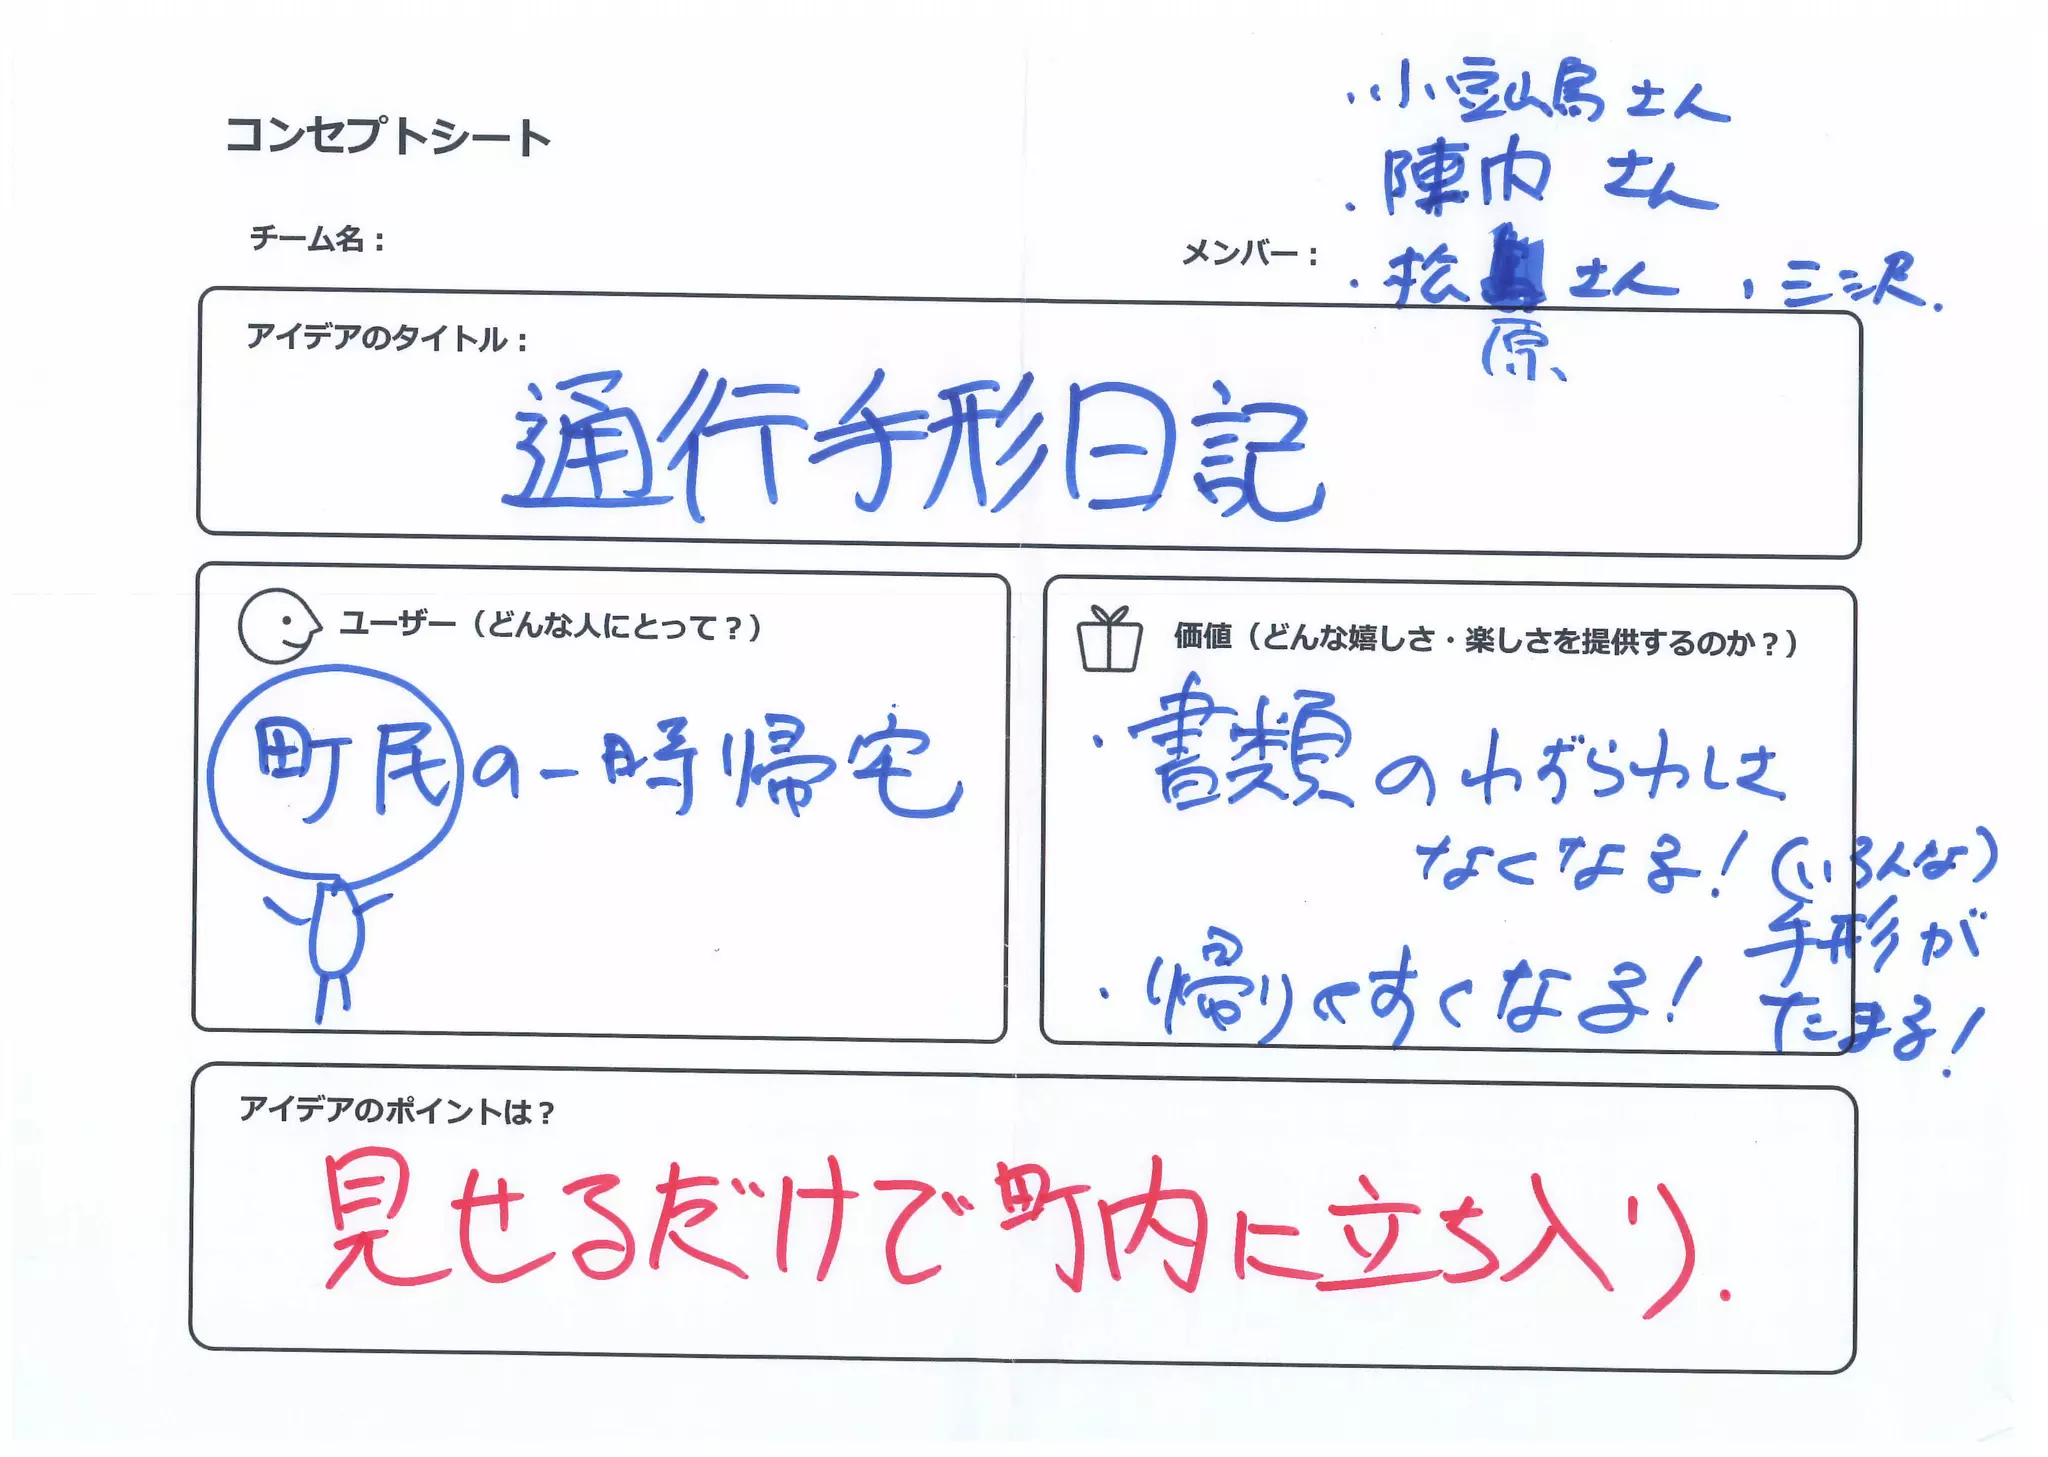 コンセプトシート
チーム名：
メンバー：
・小豆島さん
・陣内 さん
・松原さん ・三沢.
アイデアのタイトル：
通行手形日記
ユーザー（どんな人にとって？）
町民の一時帰宅
価値（どんな嬉しさ・楽しさを提供するのか？）
・書類のわずらわしさ
なくなる！
・帰りやすくなる！
（いろんな）
手形が
たまる！
アイデアのポイントは？
見せるだけで町内に立ち入り.